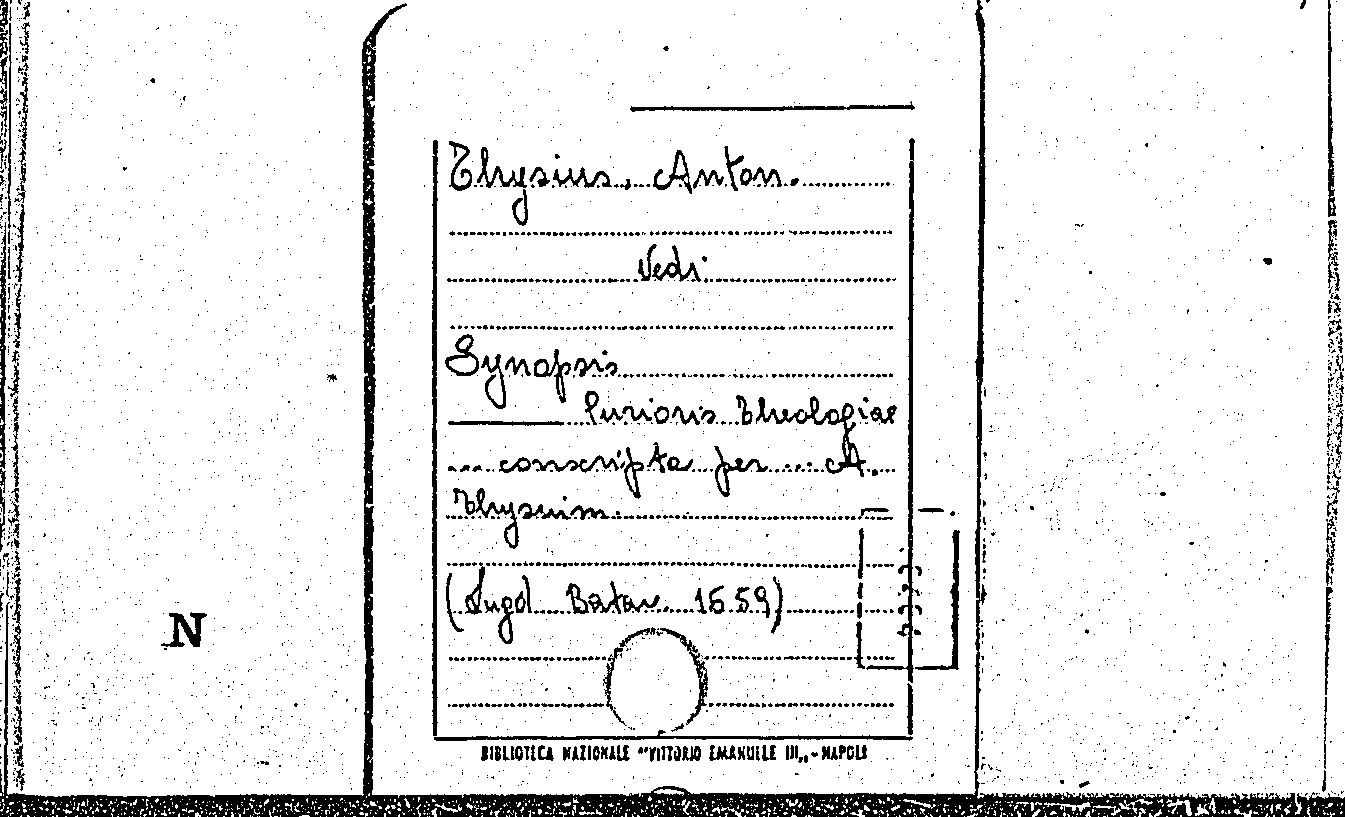 Thysius, Anton.
Vedi
Synopsis
Purioris Theologiae
... conscripta per ... A.
Thysium.
(Lugd. Batav. 1659)
N
BIBLIOTECA NAZIONALE "VITTORIO EMANUELE III„ - NAPOLI